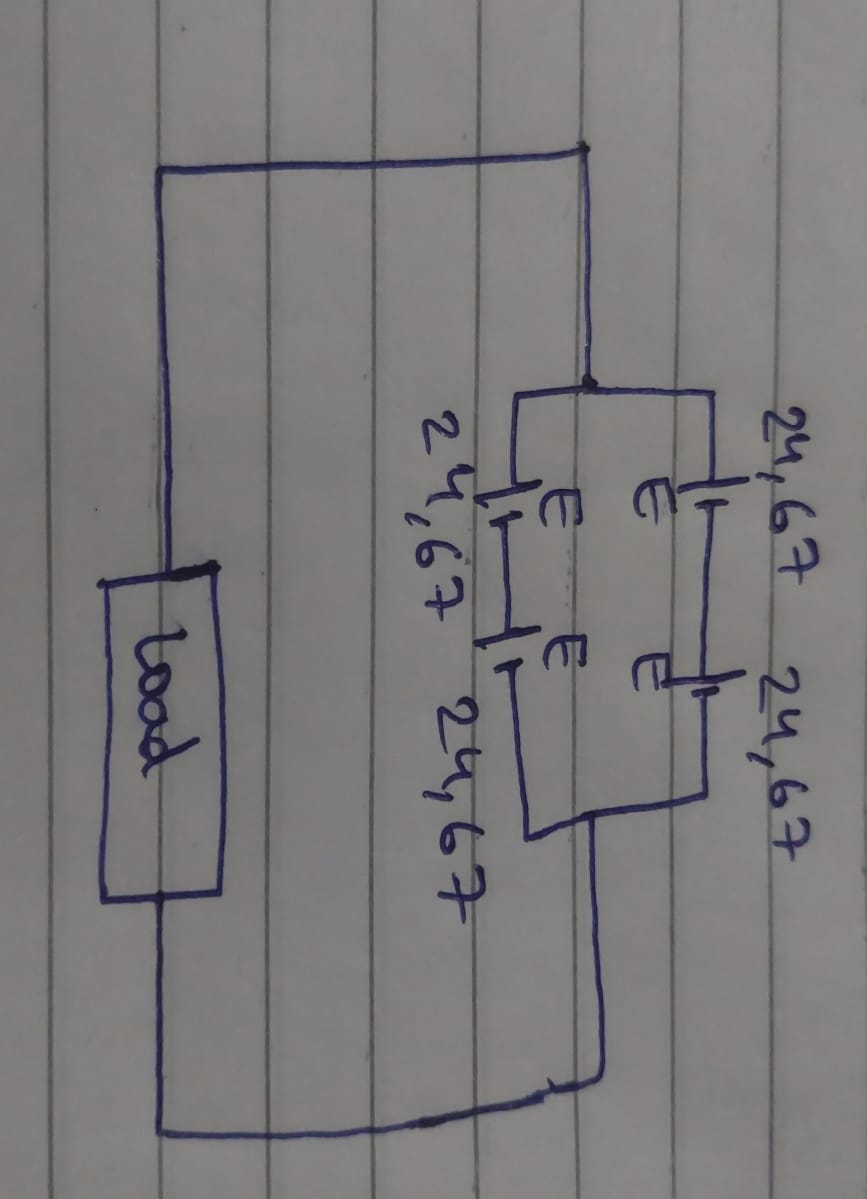 24,67 24,67
E E
E E
24,67 24,67
Load